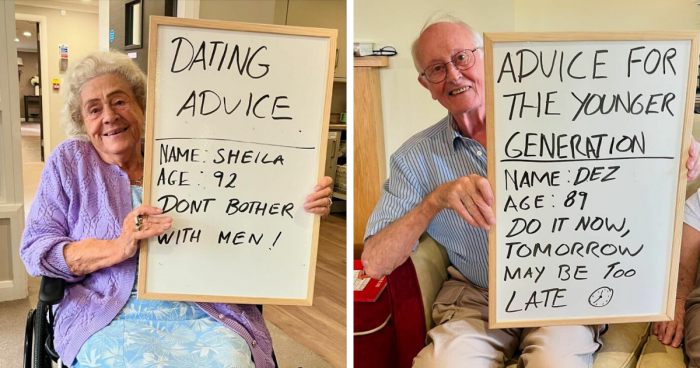 DATING
ADVICE.
NAME: SHEILA
AGE: 92
DONT BOTHER
WITH MEN!
ADVICE FOR
THE YOUNGER
GENERATION
NAME: DEZ
AGE: 89
DO IT NOW,
TOMORROW
MAY BE TOO
LATE